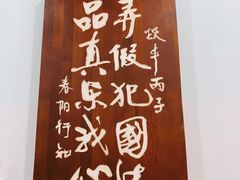 丙子
弄假犯國
品真乐我
春阳行知